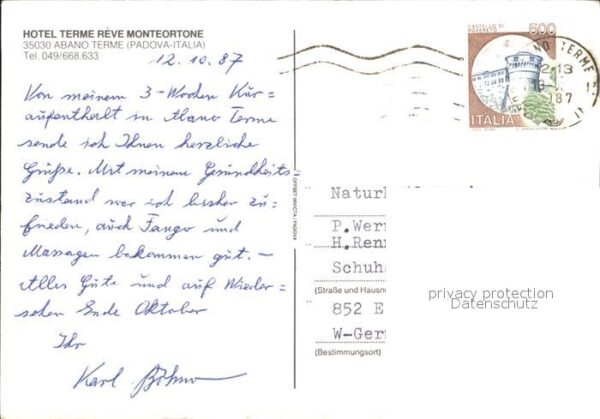 HOTEL TERME RÈVE MONTEORTONE
35030 ABANO TERME (PADOVA-ITALIA)
Tel. 049/668.633
12.10.87
Von meinem 3-Wochen Kur=
aufenthalt in Abano Terme
sende ich Ihnen herzliche
Grüße. Mit meinem Gesundheits
zustand war ich bisher zu=
frieden, auch Fango und
Massagen bekommen gut. –
Alles Gute und auf Wieder=
sehen Ende Oktober
Ihr
Karl Böhm
OFFSET INVICTA - PADOVA
CASTELLO DI
ROVERETO
500
ITALIA
NO TERME
12-13
87
Natur
P.Wer
H.Ren
Schuh
(Straße und Hausnu
852 E
W-Ger
(Bestimmungsort)
privacy protection
Datenschutz